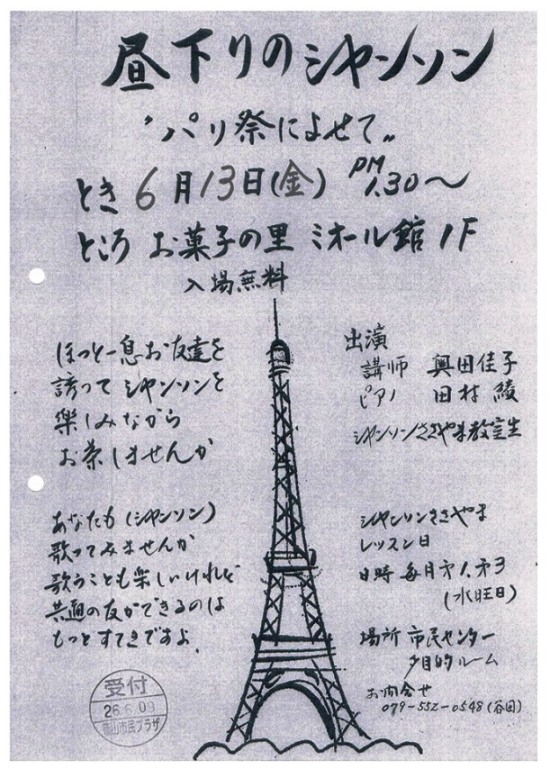 昼下りのシャンソン
"パリ祭によせて"
とき 6月13日(金) PM 1.30〜
ところ お菓子の里 ミオール館 1F
入場無料
ほっと一息お友達を
誘って シャンソンを
楽しみながら
お茶しませんか
あなたも(シャンソン)
歌ってみませんか
歌うことも楽しいけれど
共通の友ができるのは
もっとすてきですよ.
出演
講師 奥田佳子
ピアノ 田村 綾
シャンソンささやま教室生
シャンソンささやま
レッスン日
日時 毎月第1.第3
(水旺日)
場所 市民センター
多目的ルーム
お問合せ
079-552-0548(谷田)
受付
26.6.09
篠山市民プラザ